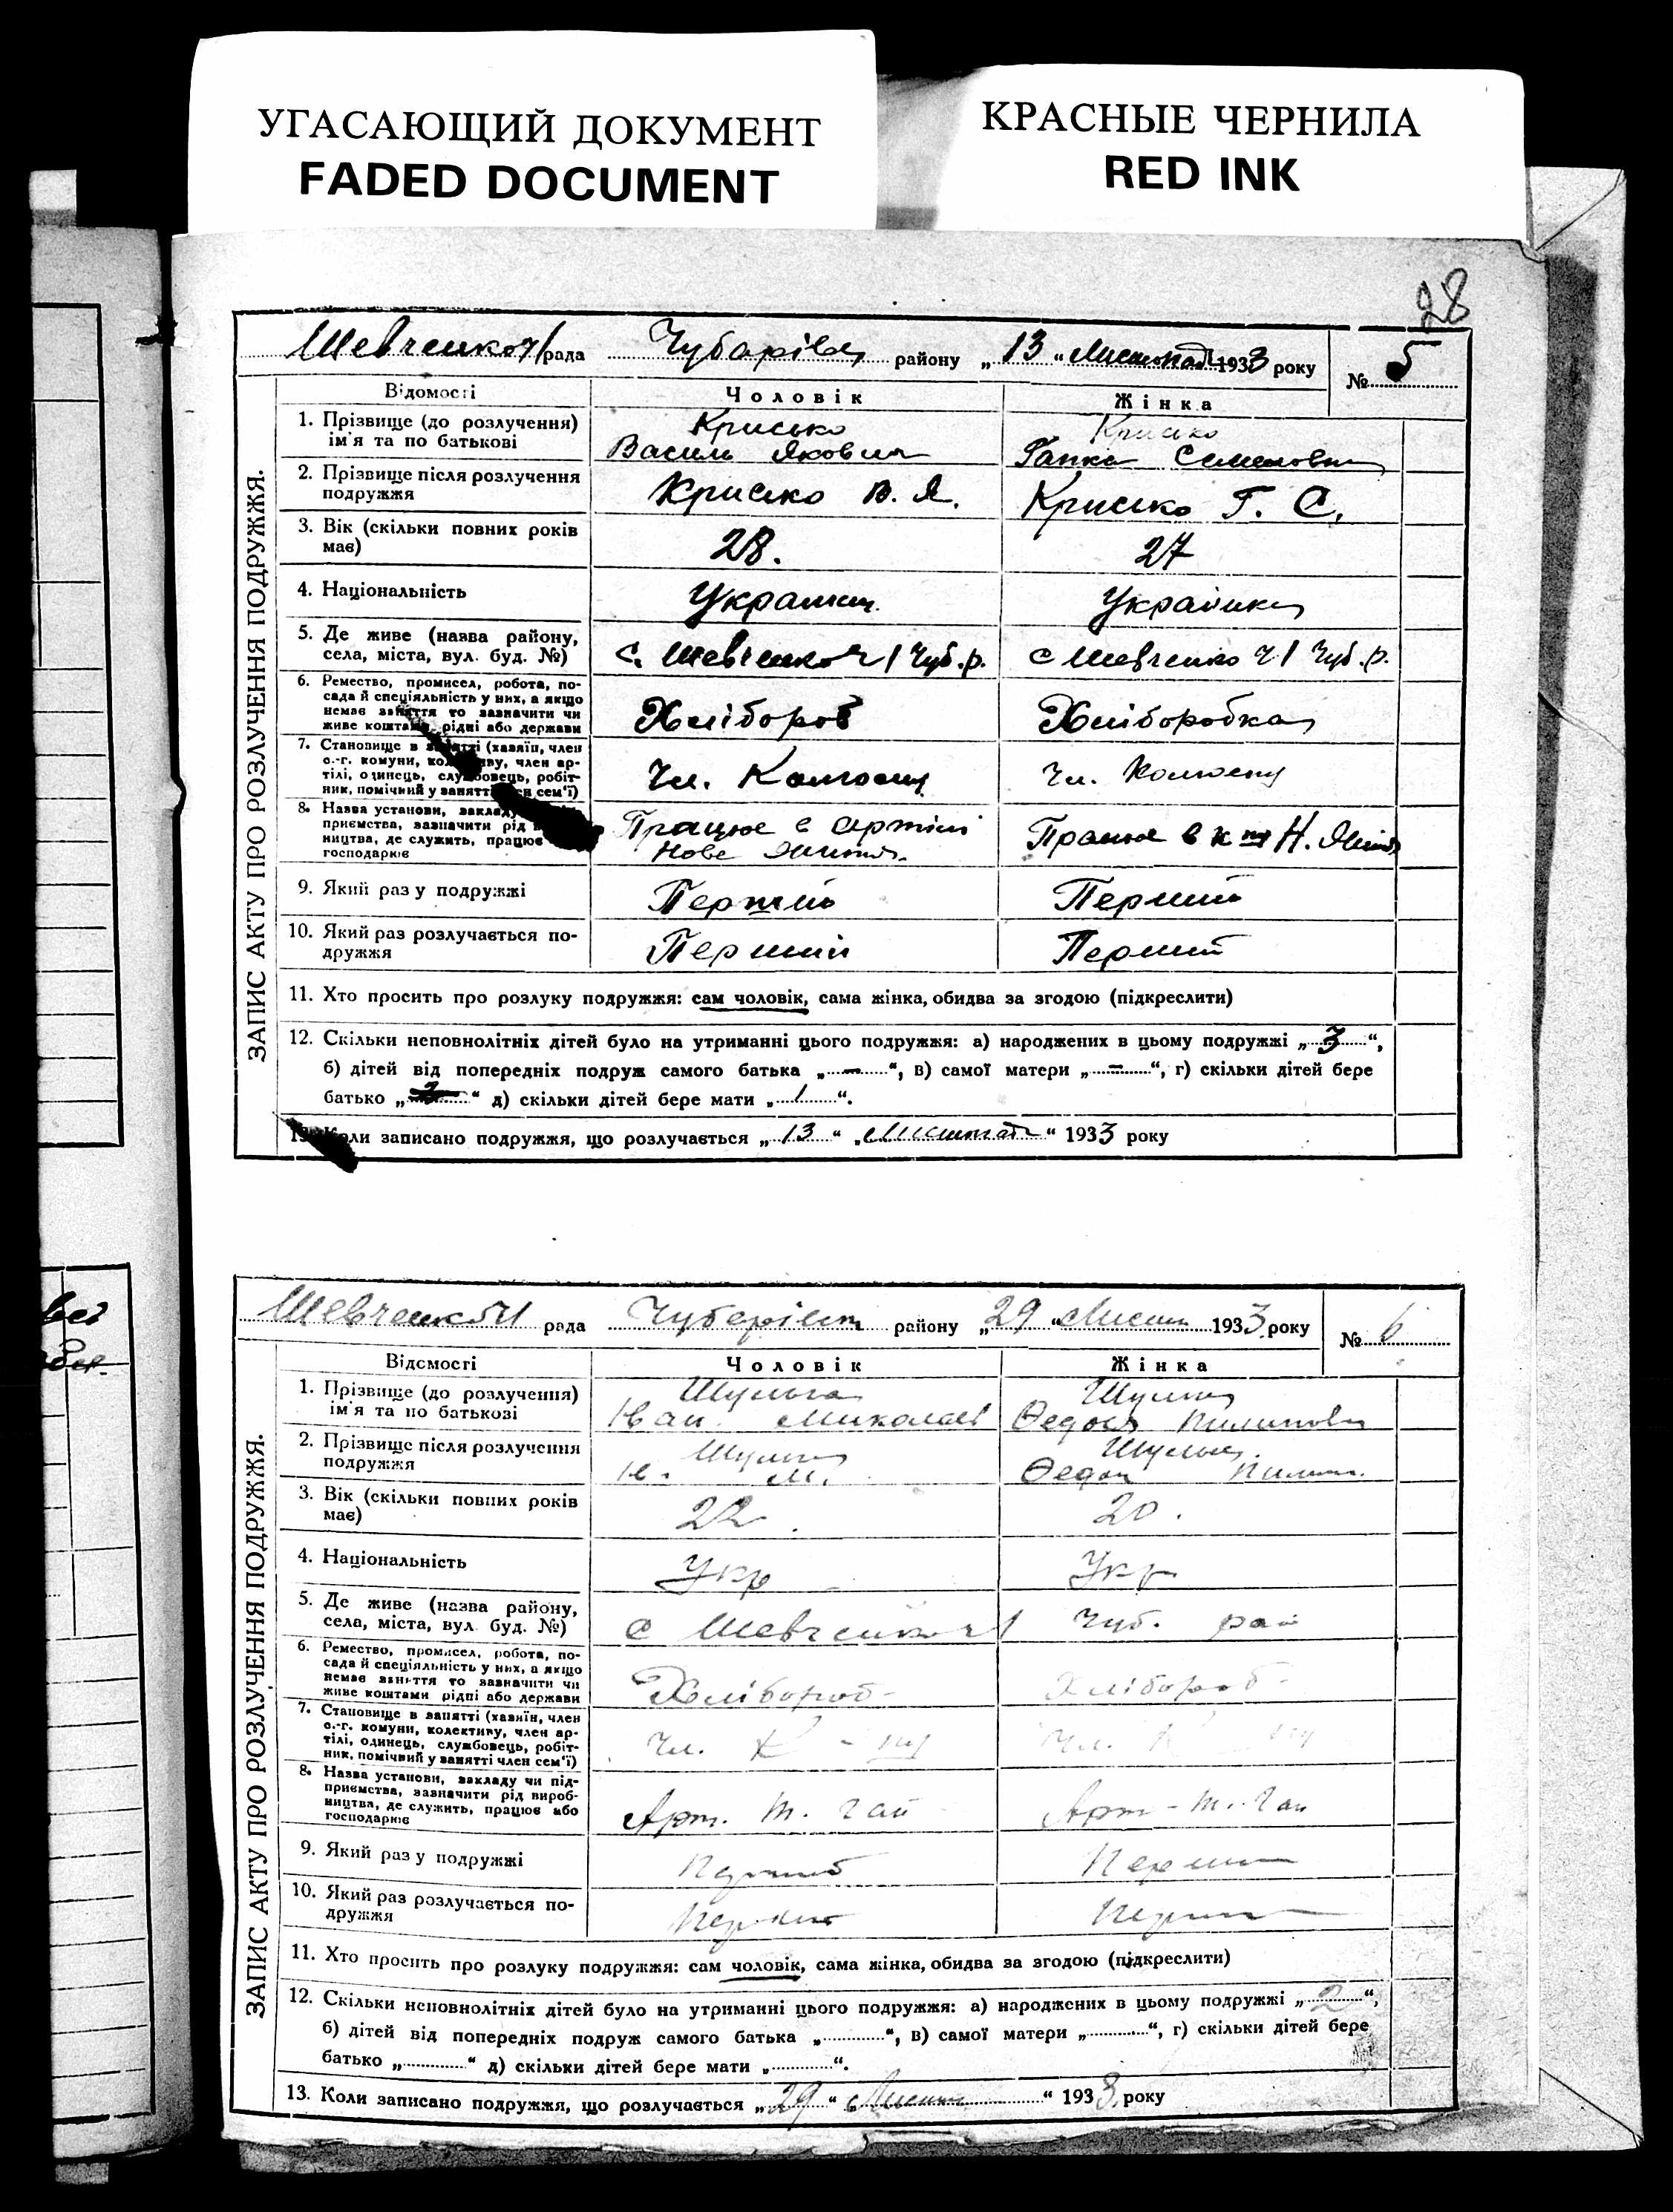 УГАСАЮЩИЙ ДОКУМЕНТ
FADED DOCUMENT
КРАСНЫЕ ЧЕРНИЛА
RED INK
28
ЗАПИС АКТУ ПРО РОЗЛУЧЕННЯ ПОДРУЖЖЯ.
Шевченко ч1 рада Чубарівськ району „13“ Листопад 1933 року № 5
Відомості Чоловік Жінка
1. Прізвище (до розлучення) Крисько Крисько
ім'я та по батькові Василь Якович Гапка Семеновна
2. Прізвище після розлучення Крисько В. Я. Крисько Г. С.
подружжя
3. Вік (скільки повних років 28. 27
має)
4. Національність Українець Українка
5. Де живе (назва району, с. Шевченко ч1 Чуб.р. с Шевченко ч1 Чуб.р.
села, міста, вул. буд. №)
6. Ремество, промисел, робота, по- Хлібороб Хліборобка
сада й спеціяльність у них, а якщо
немає заняття то зазначити чи
живе коштами рідні або держави
7. Становище в занятті (хазяїн, член Чл. Колгоспу Чл. Колгоспу
с.-г. комуни, колективу, член ар-
тілі, одинець, службовець, робіт-
ник, помічний у занятті сем'ї)
8. Назва установи, закладу Працює в артілі Працює в к-пі Н.
приємства, зазначити рід Нове Життя
ництва, де служить, працює
господарює
9. Який раз у подружжі Перший Перший
10. Який раз розлучається по- Перший Перший
дружжя
11. Хто просить про розлуку подружжя: сам чоловік, сама жінка, обидва за згодою (підкреслити)
12. Скільки неповнолітніх дітей було на утриманні цього подружжя: а) народжених в цьому подружжі „3“,
б) дітей від попередніх подруж самого батька „–“, в) самої матери „–“, г) скільки дітей бере
батько „2“ д) скільки дітей бере мати „1“.
13. Коли записано подружжя, що розлучається „13“ „Листопад“ 1933 року
ЗАПИС АКТУ ПРО РОЗЛУЧЕННЯ ПОДРУЖЖЯ.
Шевченко ч1 рада Чубарівськ району „29“ Листоп 1933 року № 6
Відомості Чоловік Жінка
1. Прізвище (до розлучення) Шульга Шульга
ім'я та по батькові Іван Миколаєв Федося Пилиповна
2. Прізвище після розлучення Шульга Шульга
подружжя І. М. Федос Пилип.
3. Вік (скільки повних років 22. 20.
має)
4. Національність Укр Укр
5. Де живе (назва району, с Шевченко ч1 Чуб. рай
села, міста, вул. буд. №)
6. Ремество, промисел, робота, по- Хлібороб- Хлібороб-
сада й спеціяльність у них, а якщо
немає заняття то зазначити чи
живе коштами рідні або держави
7. Становище в занятті (хазяїн, член Чл. К-пу Чл. К пу
с.-г. комуни, колективу, член ар-
тілі, одинець, службовець, робіт-
ник, помічний у занятті член сем'ї)
8. Назва установи, закладу чи під- Арт. Т. Гай Арт-Т. Гай
приємства, зазначити рід вироб-
ництва, де служить, працює або
господарює
9. Який раз у подружжі Перший Перший
10. Який раз розлучається по- Перший Перший
дружжя
11. Хто просить про розлуку подружжя: сам чоловік, сама жінка, обидва за згодою (підкреслити)
12. Скільки неповнолітніх дітей було на утриманні цього подружжя: а) народжених в цьому подружжі „2“,
б) дітей від попередніх подруж самого батька „“, в) самої матери „“, г) скільки дітей бере
батько „“ д) скільки дітей бере мати „“.
13. Коли записано подружжя, що розлучається „29“ „Листоп“ 1933 року